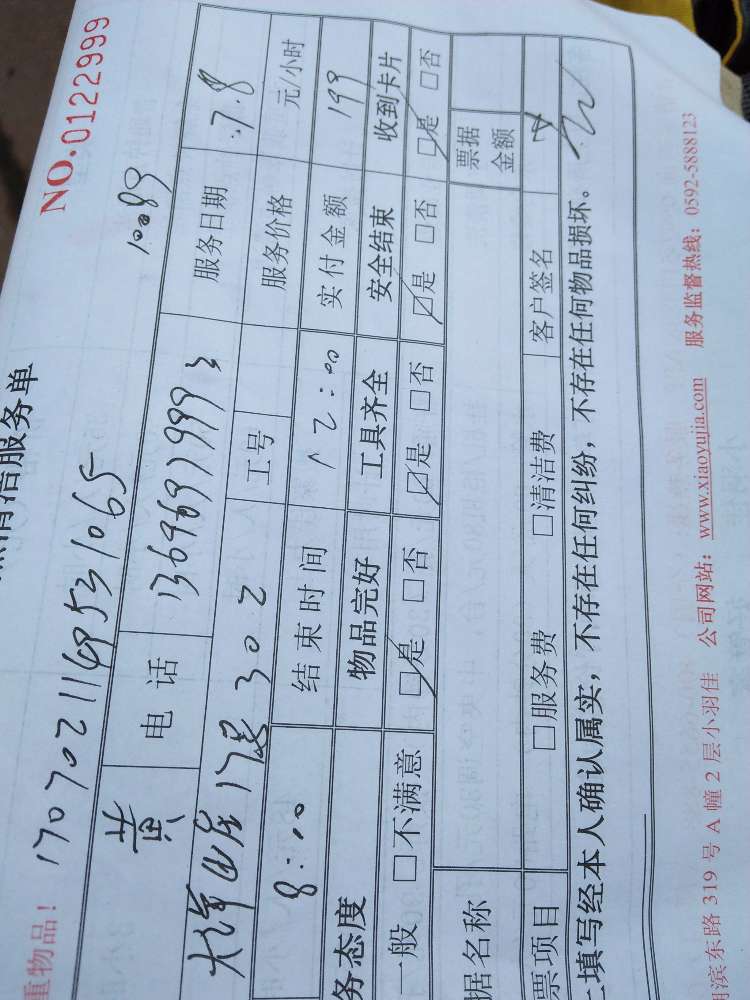 清洁服务单
NO.0122999
重物品！ 170702114953 1065
10089
黄 电话 服务日期 7.8
302 工号 服务价格 元/小时
8:00 结束时间 12:00 实付金额 199
务态度 物品完好 工具齐全 安全结束 收到卡片
一般 □不满意 □是 □否 □是 □否 □是 □否 □是 □否
据名称 票据金额
票项目 □服务费 □清洁费 客户签名
填写经本人确认属实，不存在任何纠纷，不存在任何物品损坏。
滨东路 319 号 A 幢 2 层小羽佳 公司网站：www.xiaoyujia.com 服务监督热线：0592-5888123